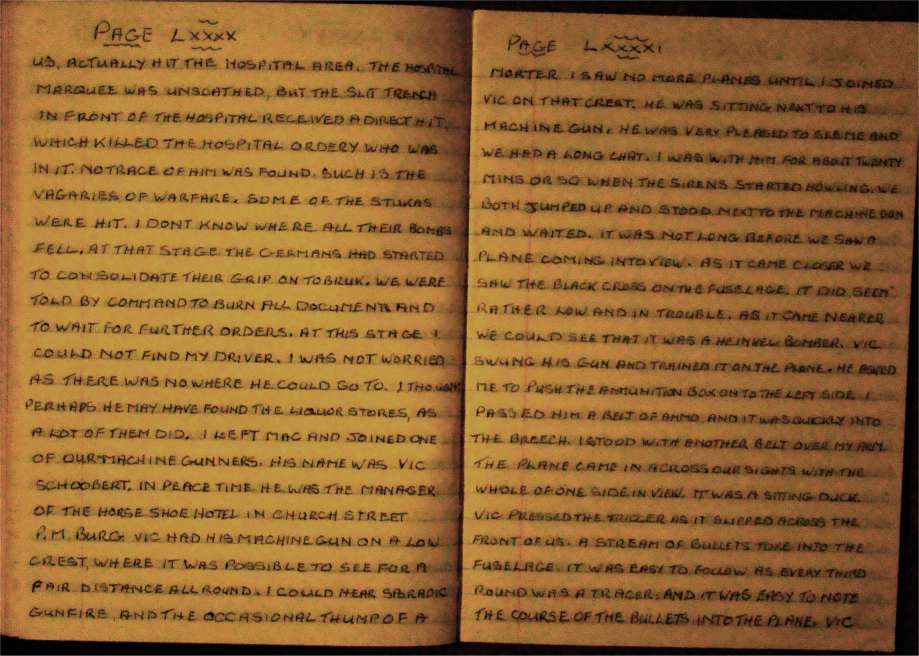 PAGE LXXXX
US, ACTUALLY HIT THE HOSPITAL AREA. THE HOSPITAL
MARQUEE WAS UNSCATHED, BUT THE SLIT TRENCH
IN FRONT OF THE HOSPITAL RECEIVED A DIRECT HIT,
WHICH KILLED THE HOSPITAL ORDERY WHO WAS
IN IT. NO TRACE OF HIM WAS FOUND. SUCH IS THE
VAGARIES OF WARFARE. SOME OF THE STUKAS
WERE HIT. I DONT KNOW WHERE ALL THEIR BOMBS
FELL. AT THAT STAGE THE GERMANS HAD STARTED
TO CONSOLIDATE THEIR GRIP ON TOBRUK. WE WERE
TOLD BY COMMAND TO BURN ALL DOCUMENTS AND
TO WAIT FOR FURTHER ORDERS. AT THIS STAGE I
COULD NOT FIND MY DRIVER. I WAS NOT WORRIED
AS THERE WAS NO WHERE HE COULD GO TO. I THOUGHT
PERHAPS HE MAY HAVE FOUND THE LIQUOR STORES, AS
A LOT OF THEM DID. I LEFT MAC AND JOINED ONE
OF OUR MACHINE GUNNERS. HIS NAME WAS VIC
SCHOOBERT. IN PEACE TIME HE WAS THE MANAGER
OF THE HORSE SHOE HOTEL IN CHURCH STREET
P.M. BURG. VIC HAD HIS MACHINE GUN ON A LOW
CREST, WHERE IT WAS POSSIBLE TO SEE FOR A
FAIR DISTANCE ALL ROUND. I COULD HEAR SBRADIC
GUNFIRE, AND THE OCCASIONAL THUMP OF A
PAGE LXXXXI
MORTER. I SAW NO MORE PLANES UNTIL I JOINED
VIC ON THAT CREST. HE WAS SITTING NEXT TO HIS
MACHINE GUN. HE WAS VERY PLEASED TO SEE ME AND
WE HAD A LONG CHAT. I WAS WITH HIM FOR ABOUT TWENTY
MINS OR SO WHEN THE SIRENS STARTED HOWLING. WE
BOTH JUMPED UP AND STOOD NEXT TO THE MACHINE GUN
AND WAITED. IT WAS NOT LONG BEFORE WE SAW A
PLANE COMING INTO VIEW. AS IT CAME CLOSER WE
SAW THE BLACK CROSS ON THE FUSELAGE. IT DID SEEM
RATHER LOW AND IN TROUBLE. AS IT CAME NEARER
WE COULD SEE THAT IT WAS A HEINKEL BOMBER. VIC
SWUNG HIS GUN AND TRAINED IT ON THE PLANE. HE ASKED
ME TO PUSH THE AMMUNITION BOX ON TO THE LEFT SIDE. I
PASSED HIM A BELT OF AMMO AND IT WAS QUICKLY INTO
THE BREECH. I STOOD WITH ANOTHER BELT OVER MY ARM.
THE PLANE CAME IN ACROSS OUR SIGHTS WITH THE
WHOLE OF ONE SIDE IN VIEW. IT WAS A SITTING DUCK.
VIC PRESSED THE TRIGGER AS IT SLIPPED ACROSS THE
FRONT OF US. A STREAM OF BULLETS TORE INTO THE
FUSELAGE. IT WAS EASY TO FOLLOW AS EVERY THIRD
ROUND WAS A TRACER. AND IT WAS EASY TO NOTE
THE COURSE OF THE BULLETS INTO THE PLANE. VIC